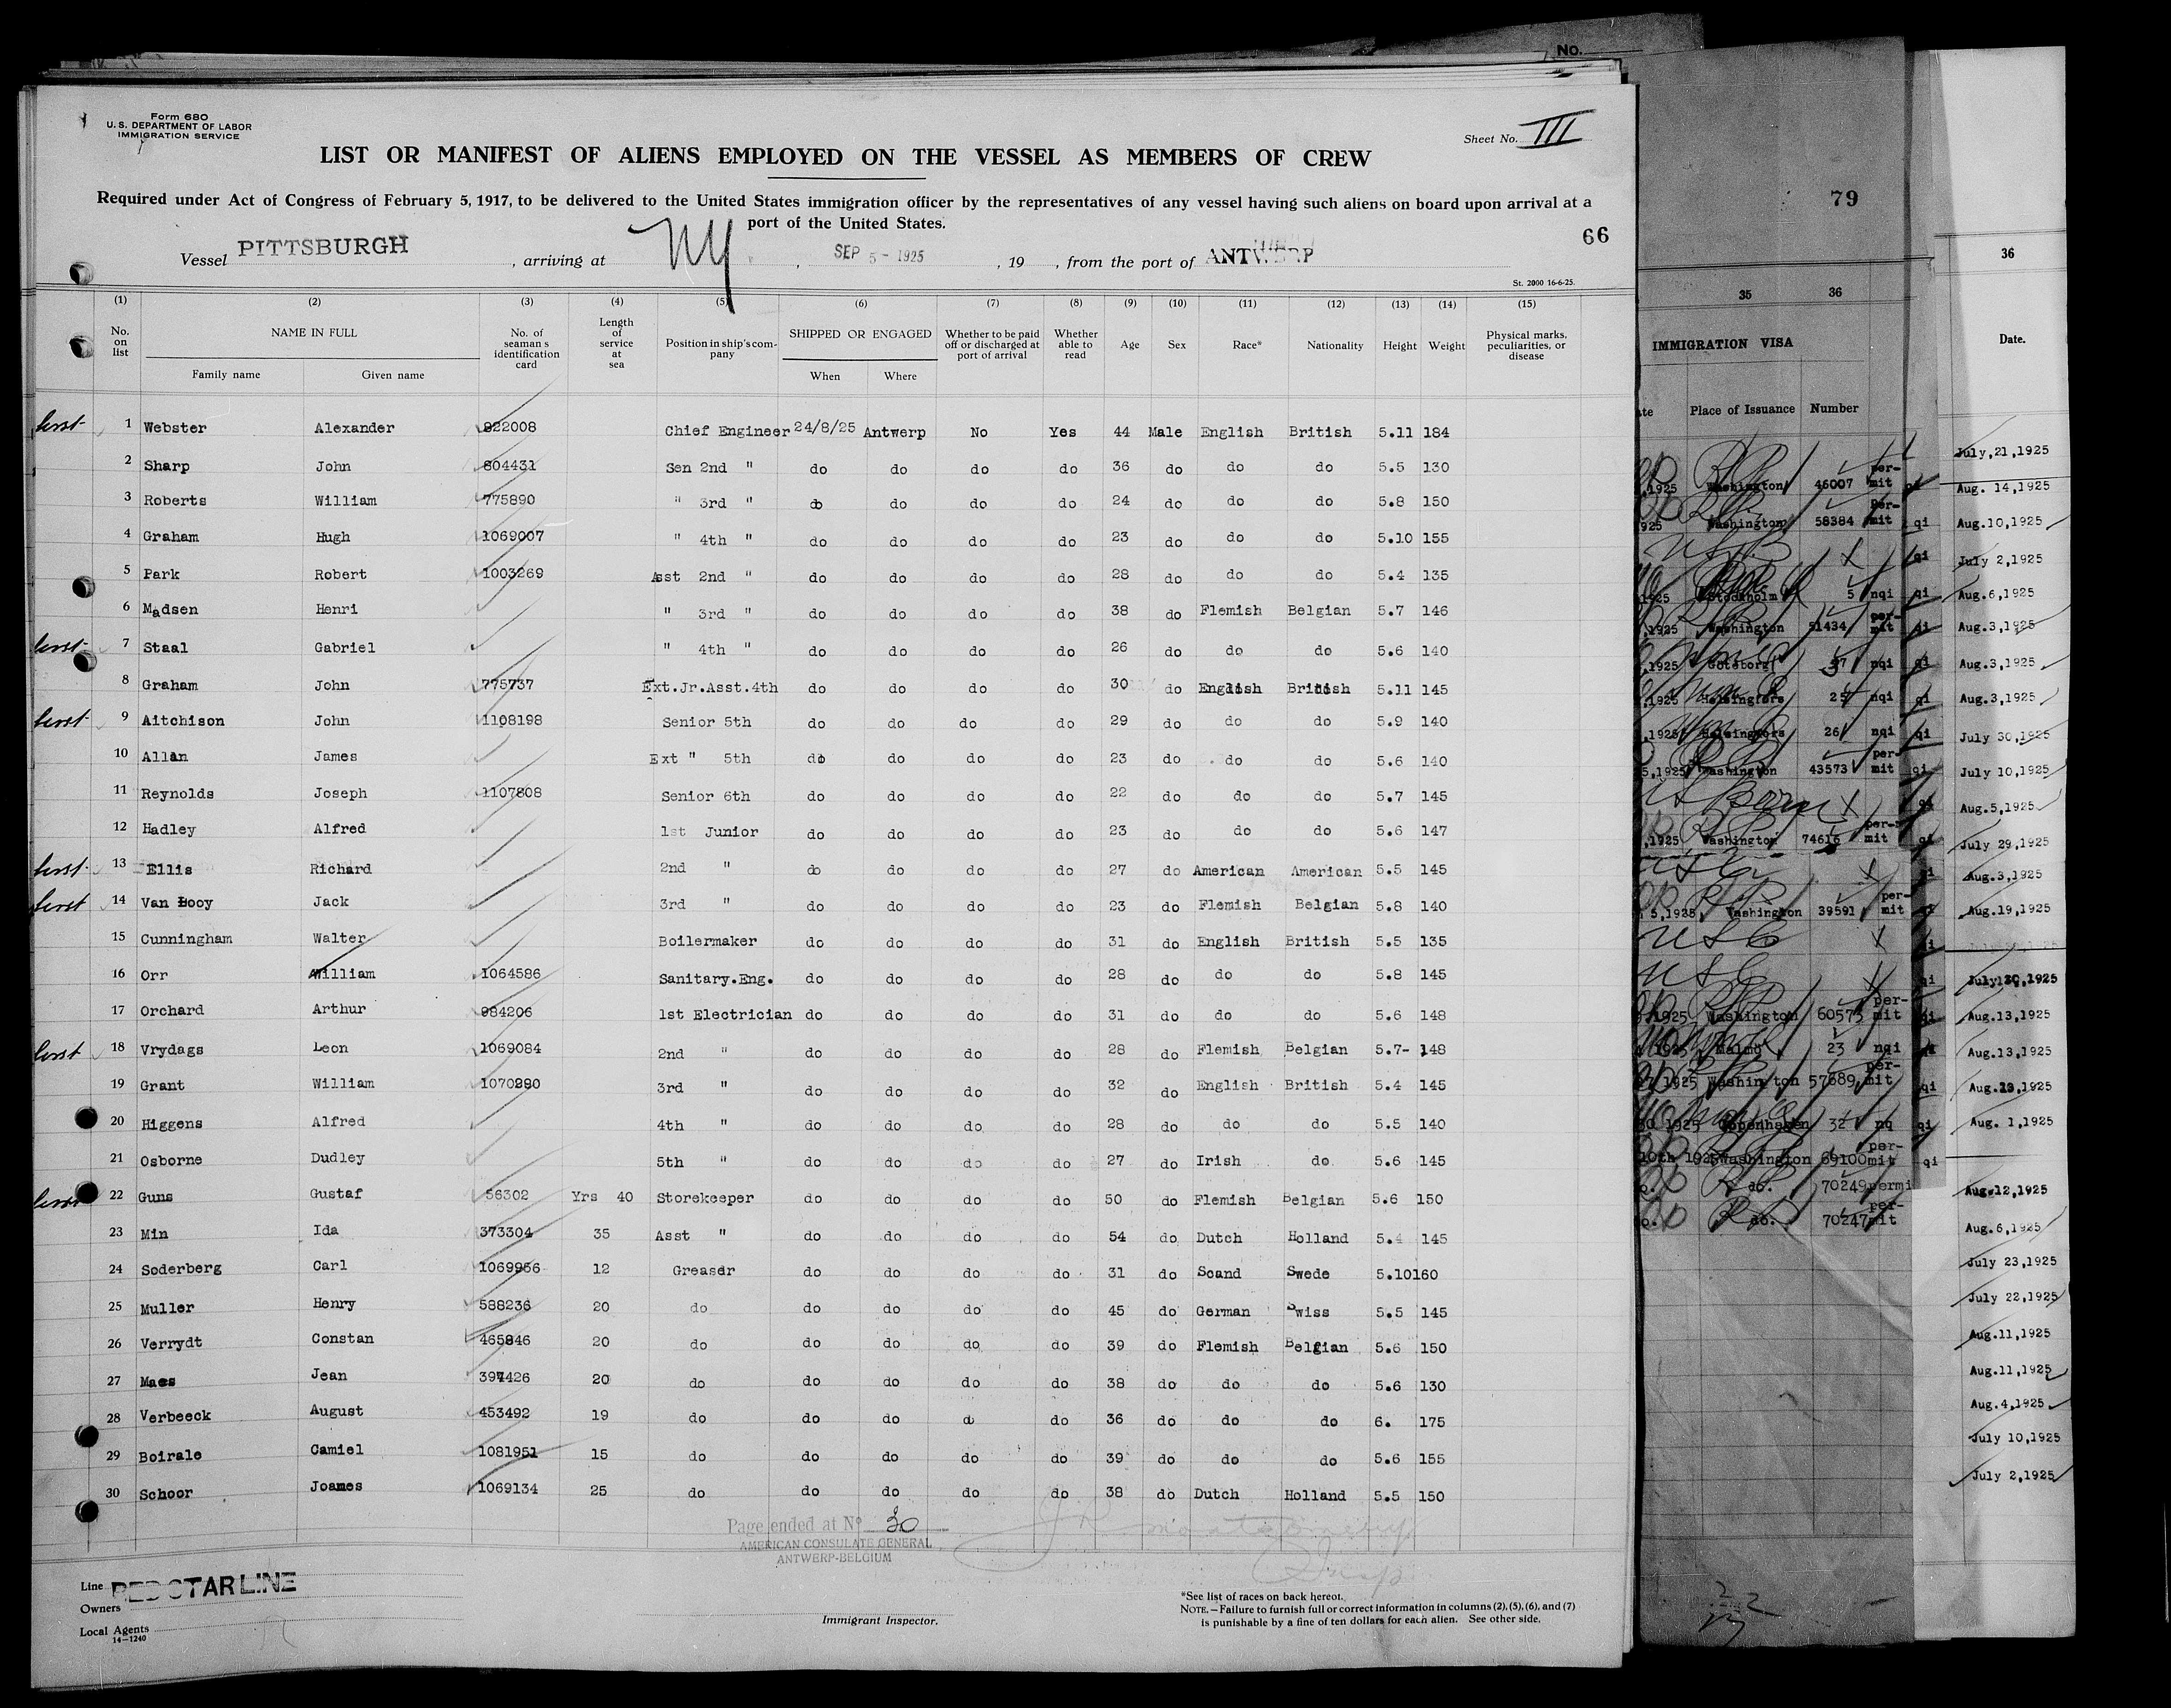 No.
Form 680
U. S. DEPARTMENT OF LABOR
IMMIGRATION SERVICE
Sheet No. III
LIST OR MANIFEST OF ALIENS EMPLOYED ON THE VESSEL AS MEMBERS OF CREW
Required under Act of Congress of February 5, 1917, to be delivered to the United States immigration officer by the representatives of any vessel having such aliens on board upon arrival at a
port of the United States.
66
Vessel PITTSBURGH , arriving at NY , SEP 5 - 1925 , 19 , from the port of ANTWERP
St. 2000 16-6-25.
(1) (2) (3) (4) (5) (6) (7) (8) (9) (10) (11) (12) (13) (14) (15)
No. on list NAME IN FULL No. of seaman s identification card Length of service at sea Position in ship's company SHIPPED OR ENGAGED Whether to be paid off or discharged at port of arrival Whether able to read Age Sex Race* Nationality Height Weight Physical marks, peculiarities, or disease
Family name Given name When Where
1 Webster Alexander 822008 Chief Engineer 24/8/25 Antwerp No Yes 44 Male English British 5.11 184
2 Sharp John 804431 Sen 2nd " do do do do 36 do do do 5.5 130
3 Roberts William 775890 " 3rd " do do do do 24 do do do 5.8 150
4 Graham Hugh 1069007 " 4th " do do do do 23 do do do 5.10 155
5 Park Robert 1003269 Asst 2nd " do do do do 28 do do do 5.4 135
6 Madsen Henri " 3rd " do do do do 38 do Flemish Belgian 5.7 146
7 Staal Gabriel " 4th " do do do do 26 do do do 5.6 140
8 Graham John 775737 Ext.Jr.Asst.4th do do do do 30 do English British 5.11 145
9 Aitchison John 1108198 Senior 5th do do do do 29 do do do 5.9 140
10 Allan James Ext " 5th do do do do 23 do do do 5.6 140
11 Reynolds Joseph 1107808 Senior 6th do do do do 22 do do do 5.7 145
12 Hadley Alfred 1st Junior do do do do 23 do do do 5.6 147
13 Ellis Richard 2nd " do do do do 27 do American American 5.5 145
14 Van Booy Jack 3rd " do do do do 23 do Flemish Belgian 5.8 140
15 Cunningham Walter Boilermaker do do do do 31 do English British 5.5 135
16 Orr William 1064586 Sanitary.Eng. do do do do 28 do do do 5.8 145
17 Orchard Arthur 984206 1st Electrician do do do do 31 do do do 5.6 148
18 Vrydags Leon 1069084 2nd " do do do do 28 do Flemish Belgian 5.7- 148
19 Grant William 1070280 3rd " do do do do 32 do English British 5.4 145
20 Higgens Alfred 4th " do do do do 28 do do do 5.5 140
21 Osborne Dudley 5th " do do do do 27 do Irish do 5.6 145
22 Guns Gustaf 56302 Yrs 40 Storekeeper do do do do 50 do Flemish Belgian 5.6 150
23 Min Ida 373304 35 Asst " do do do do 54 do Dutch Holland 5.4 145
24 Soderberg Carl 1069956 12 Greaser do do do do 31 do Scand Swede 5.10 160
25 Muller Henry 588236 20 do do do do do 45 do German Swiss 5.5 145
26 Verrydt Constan 465846 20 do do do do do 39 do Flemish Belgian 5.6 150
27 Maes Jean 397426 20 do do do do do 38 do do do 5.6 130
28 Verbeeck August 453492 19 do do do do do 36 do do do 6. 175
29 Boirale Camiel 1081951 15 do do do do do 39 do do do 5.6 155
30 Schoor Joames 1069134 25 do do do do do 38 do Dutch Holland 5.5 150
Page ended at No 30
AMERICAN CONSULATE GENERAL
ANTWERP-BELGIUM
Line RED STAR LINE
Owners
Local Agents
14-1240
Immigrant Inspector.
*See list of races on back hereof.
NOTE.—Failure to furnish full or correct information in columns (2), (5), (6), and (7)
is punishable by a fine of ten dollars for each alien. See other side.
79
35 36
IMMIGRATION VISA
Place of Issuance Number
1925 Washington 46007 permit
925 Washington 58384 permit qi
qi
1925 Stockholm 5 nqi qi
1925 Washington 51434 permit qi
1925 Goteborg 37 nqi qi
1925 Helsingfors 25 nqi qi
1925 Helsingfors 26 nqi qi
5,1925 Washington 43573 permit qi
US Born X
1925 Washington 74616 permit qi
5,1925, Washington 39591 permit
USC X
USC X qi
1925 Washington 60573 permit
1925 Malmo 23 nqi
1925 Washin ton 57689 permit qi
1925 Copenhagen 32 nq qi
10th 1925 Washington 69100 permit qi
do. 70249 permi
do. 70247 permit
36
Date.
July,21,1925
Aug. 14,1925
Aug.10,1925
July 2,1925
Aug.6,1925
Aug.3,1925
Aug.3,1925
Aug.3,1925
July 30,1925
July 10,1925
Aug.5,1925
July 29,1925
Aug.3,1925
Aug.19,1925
July 30,1925
Aug.13,1925
Aug.13,1925
Aug.13,1925
Aug. 1,1925
Aug.12,1925
Aug.6,1925
July 23,1925
July 22,1925
Aug.11,1925
Aug.11,1925
Aug.4,1925
July 10,1925
July 2,1925